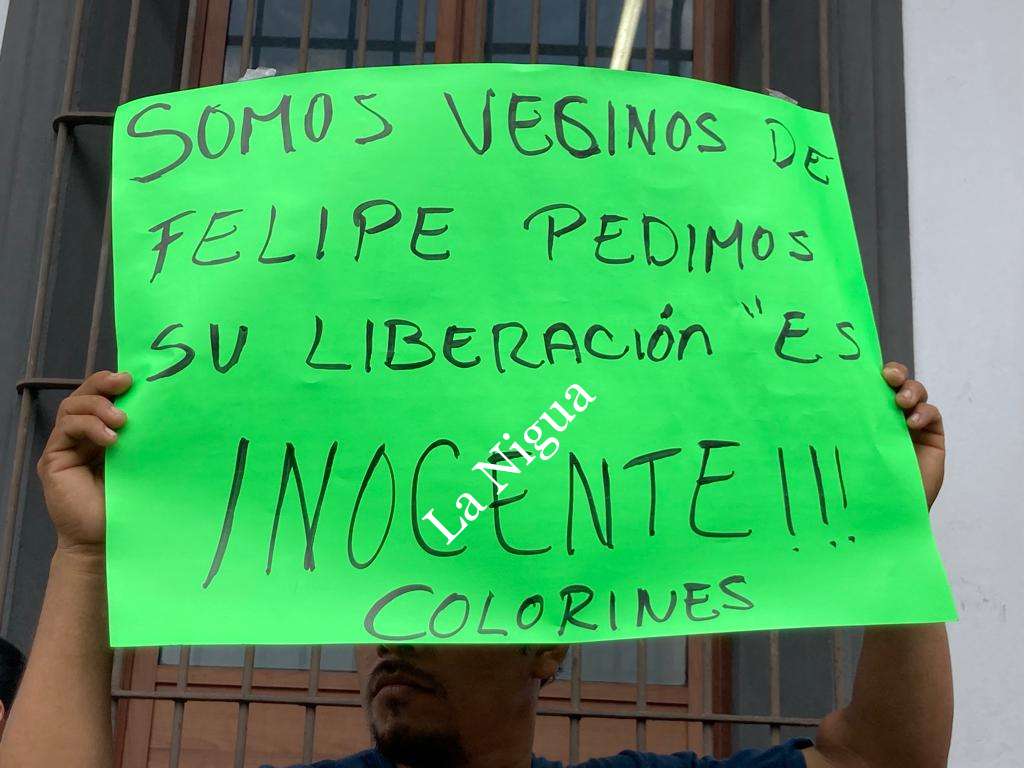 SOMOS VEGINOS DE
FELIPE PEDIMOS
SU LIBERACIÓN "ES
INOCENTE!!!
COLORINES
La Nigua